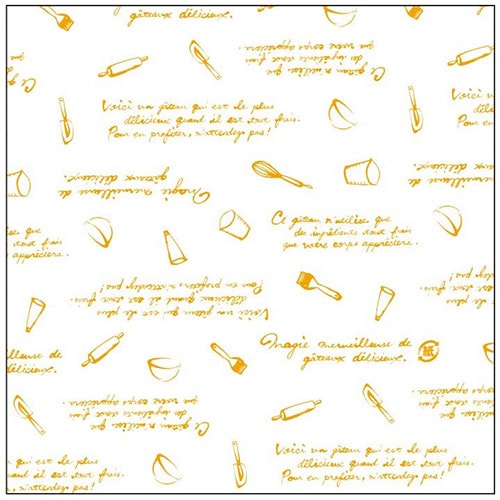 gâteaux délicieux.
Ce gâteau n'utilise que
des ingrédients dont frais
que votre corps appréciera.
Ce
Voici un gâteau qui est le plus
délicieux quand il est tout frais.
Pour en profiter, n'attendez pas!
Voici
délicieu
Pour en
Magie merveilleuse de
gâteaux délicieux.
merveilleuse de
délicieux.
Ce gâteau n'utilise que
des ingrédients dont frais
que votre corps appréciera.
utilise que
dont frais
appréciera.
Voici un gâteau qui est le plus
délicieux quand il est tout frais.
Pour en profiter, n'attendez pas!
est le plus
tout frais.
pas!
Magie merveilleuse de
gâteaux délicieux.
紙
illeuse de
délicieux.
Ce gâteau n'utilise que
des ingrédients dont frais
que votre corps appréciera.
Ce gâteau n'utilise que
des ingrédients dont frais
que votre corps appréciera.
Voici un gâteau qui est le plus
délicieux quand il est tout frais.
Pour en profiter, n'attendez pas!
qui est le plus
quand il est tout frais.
n'attendez pas!